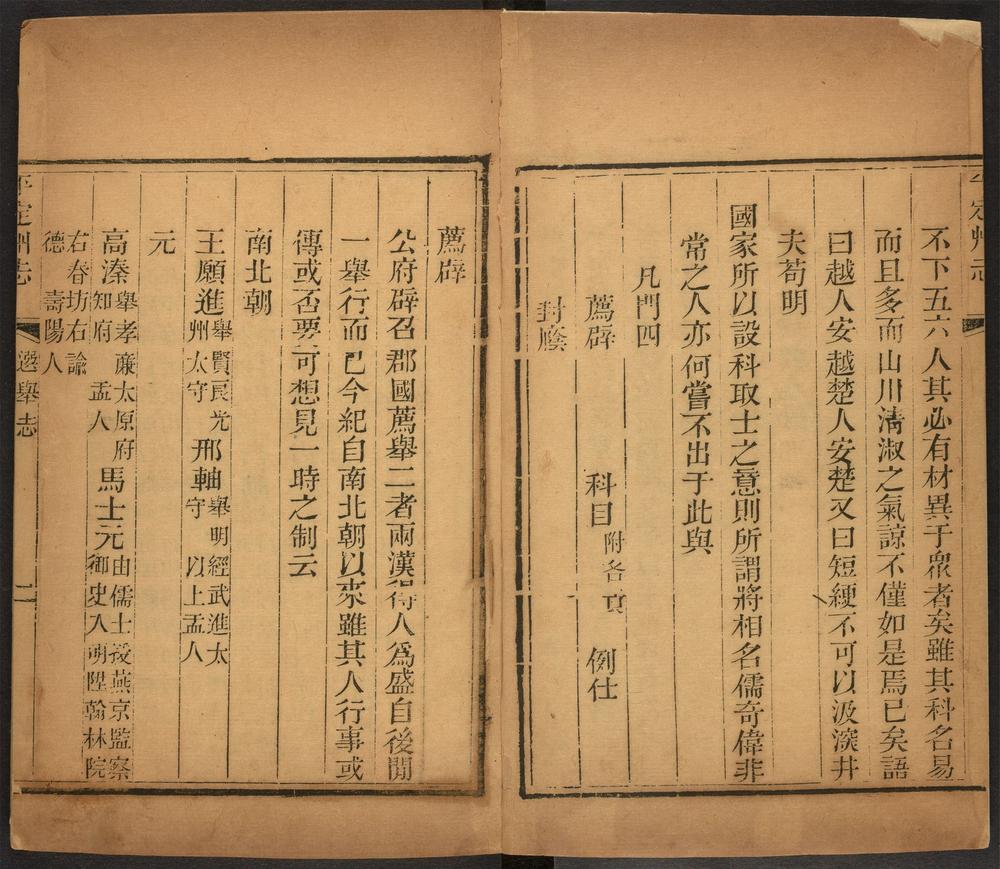 不下五六人其必有材異于衆者矣雖其科名易
而且多而山川清淑之氣諒不僅如是焉已矣語
曰越人安越楚人安楚又曰短綆不可以汲深井
夫苟明
國家所以設科取士之意則所謂將相名儒奇偉非
常之人亦何嘗不出于此與
凡門四
薦辟 科目 附各頁 例仕
封廕
薦辟
公府辟召郡國薦舉二者兩漢得人爲盛自後間
一舉行而已今紀自南北朝以來雖其人行事或
傳或否要可想見一時之制云
南北朝
王願進 舉賢良光州太守 邢軸 舉明經武進太守 以上盂人
元
高溱 舉孝廉太原府知府 盂人 馬士元 由儒士授燕京監察御史入明陞翰林院
右春坊右諭德 壽陽人
定州志 選舉志 二